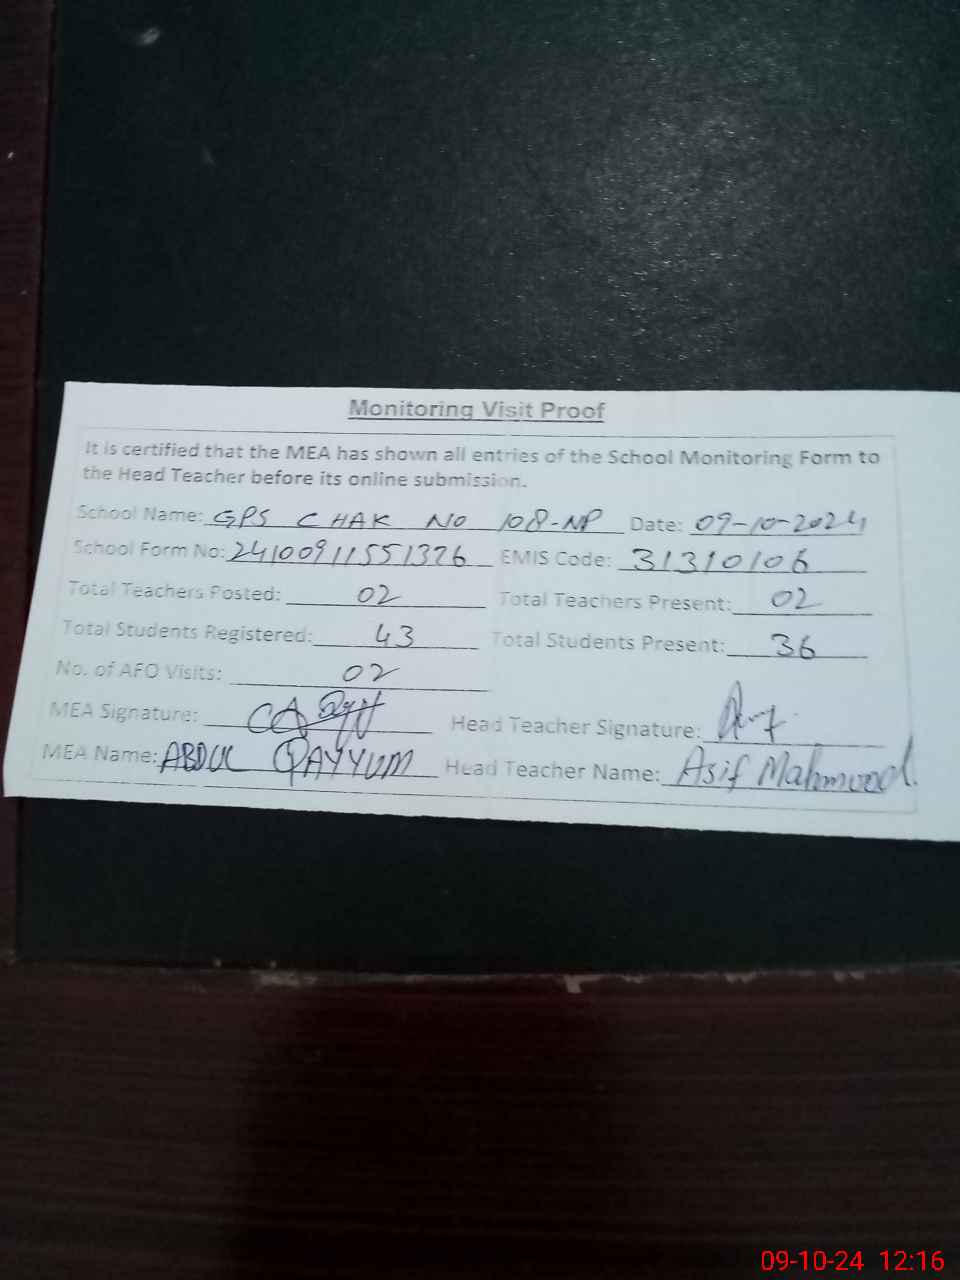 Monitoring Visit Proof
It is certified that the MEA has shown all entries of the School Monitoring Form to
the Head Teacher before its online submission.
School Name: GPS CHAK NO 108-NP Date: 09-10-2024
School Form No: 24100911551326 EMIS Code: 31310106
Total Teachers Posted: 02 Total Teachers Present: 02
Total Students Registered: 43 Total Students Present: 36
No. of AFO Visits: 02
MEA Signature: Head Teacher Signature:
MEA Name: ABDUL QAYYUM Head Teacher Name: Asif Mahmood
09-10-24 12:16